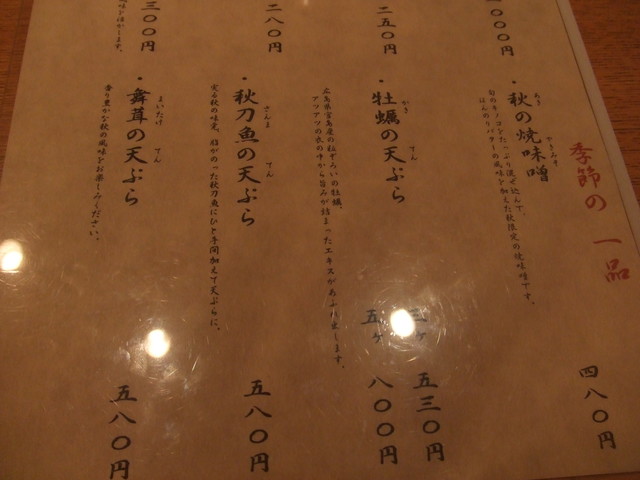 季節の一品
一〇〇〇円
二五〇円
二八〇円
三〇〇円
風味を活かします。
・秋の焼味噌
あき やきみそ
旬のキノコをたっぷり混ぜ込んで、
ほんのりバターの風味を加えた秋限定の焼味噌です。
四八〇円
・牡蠣の天ぷら
かき てん
広島県宮島産の粒ぞろいの牡蠣。
アツアツの衣の中から旨みが詰まったエキスがあふれ出します。
三ヶ 五三〇円
五ヶ 八〇〇円
・秋刀魚の天ぷら
さんま てん
実る秋の味覚。脂がのった秋刀魚にひと手間加えて天ぷらに。
五八〇円
・舞茸の天ぷら
まいたけ てん
香り豊かな秋の風味をお楽しみください。
五八〇円